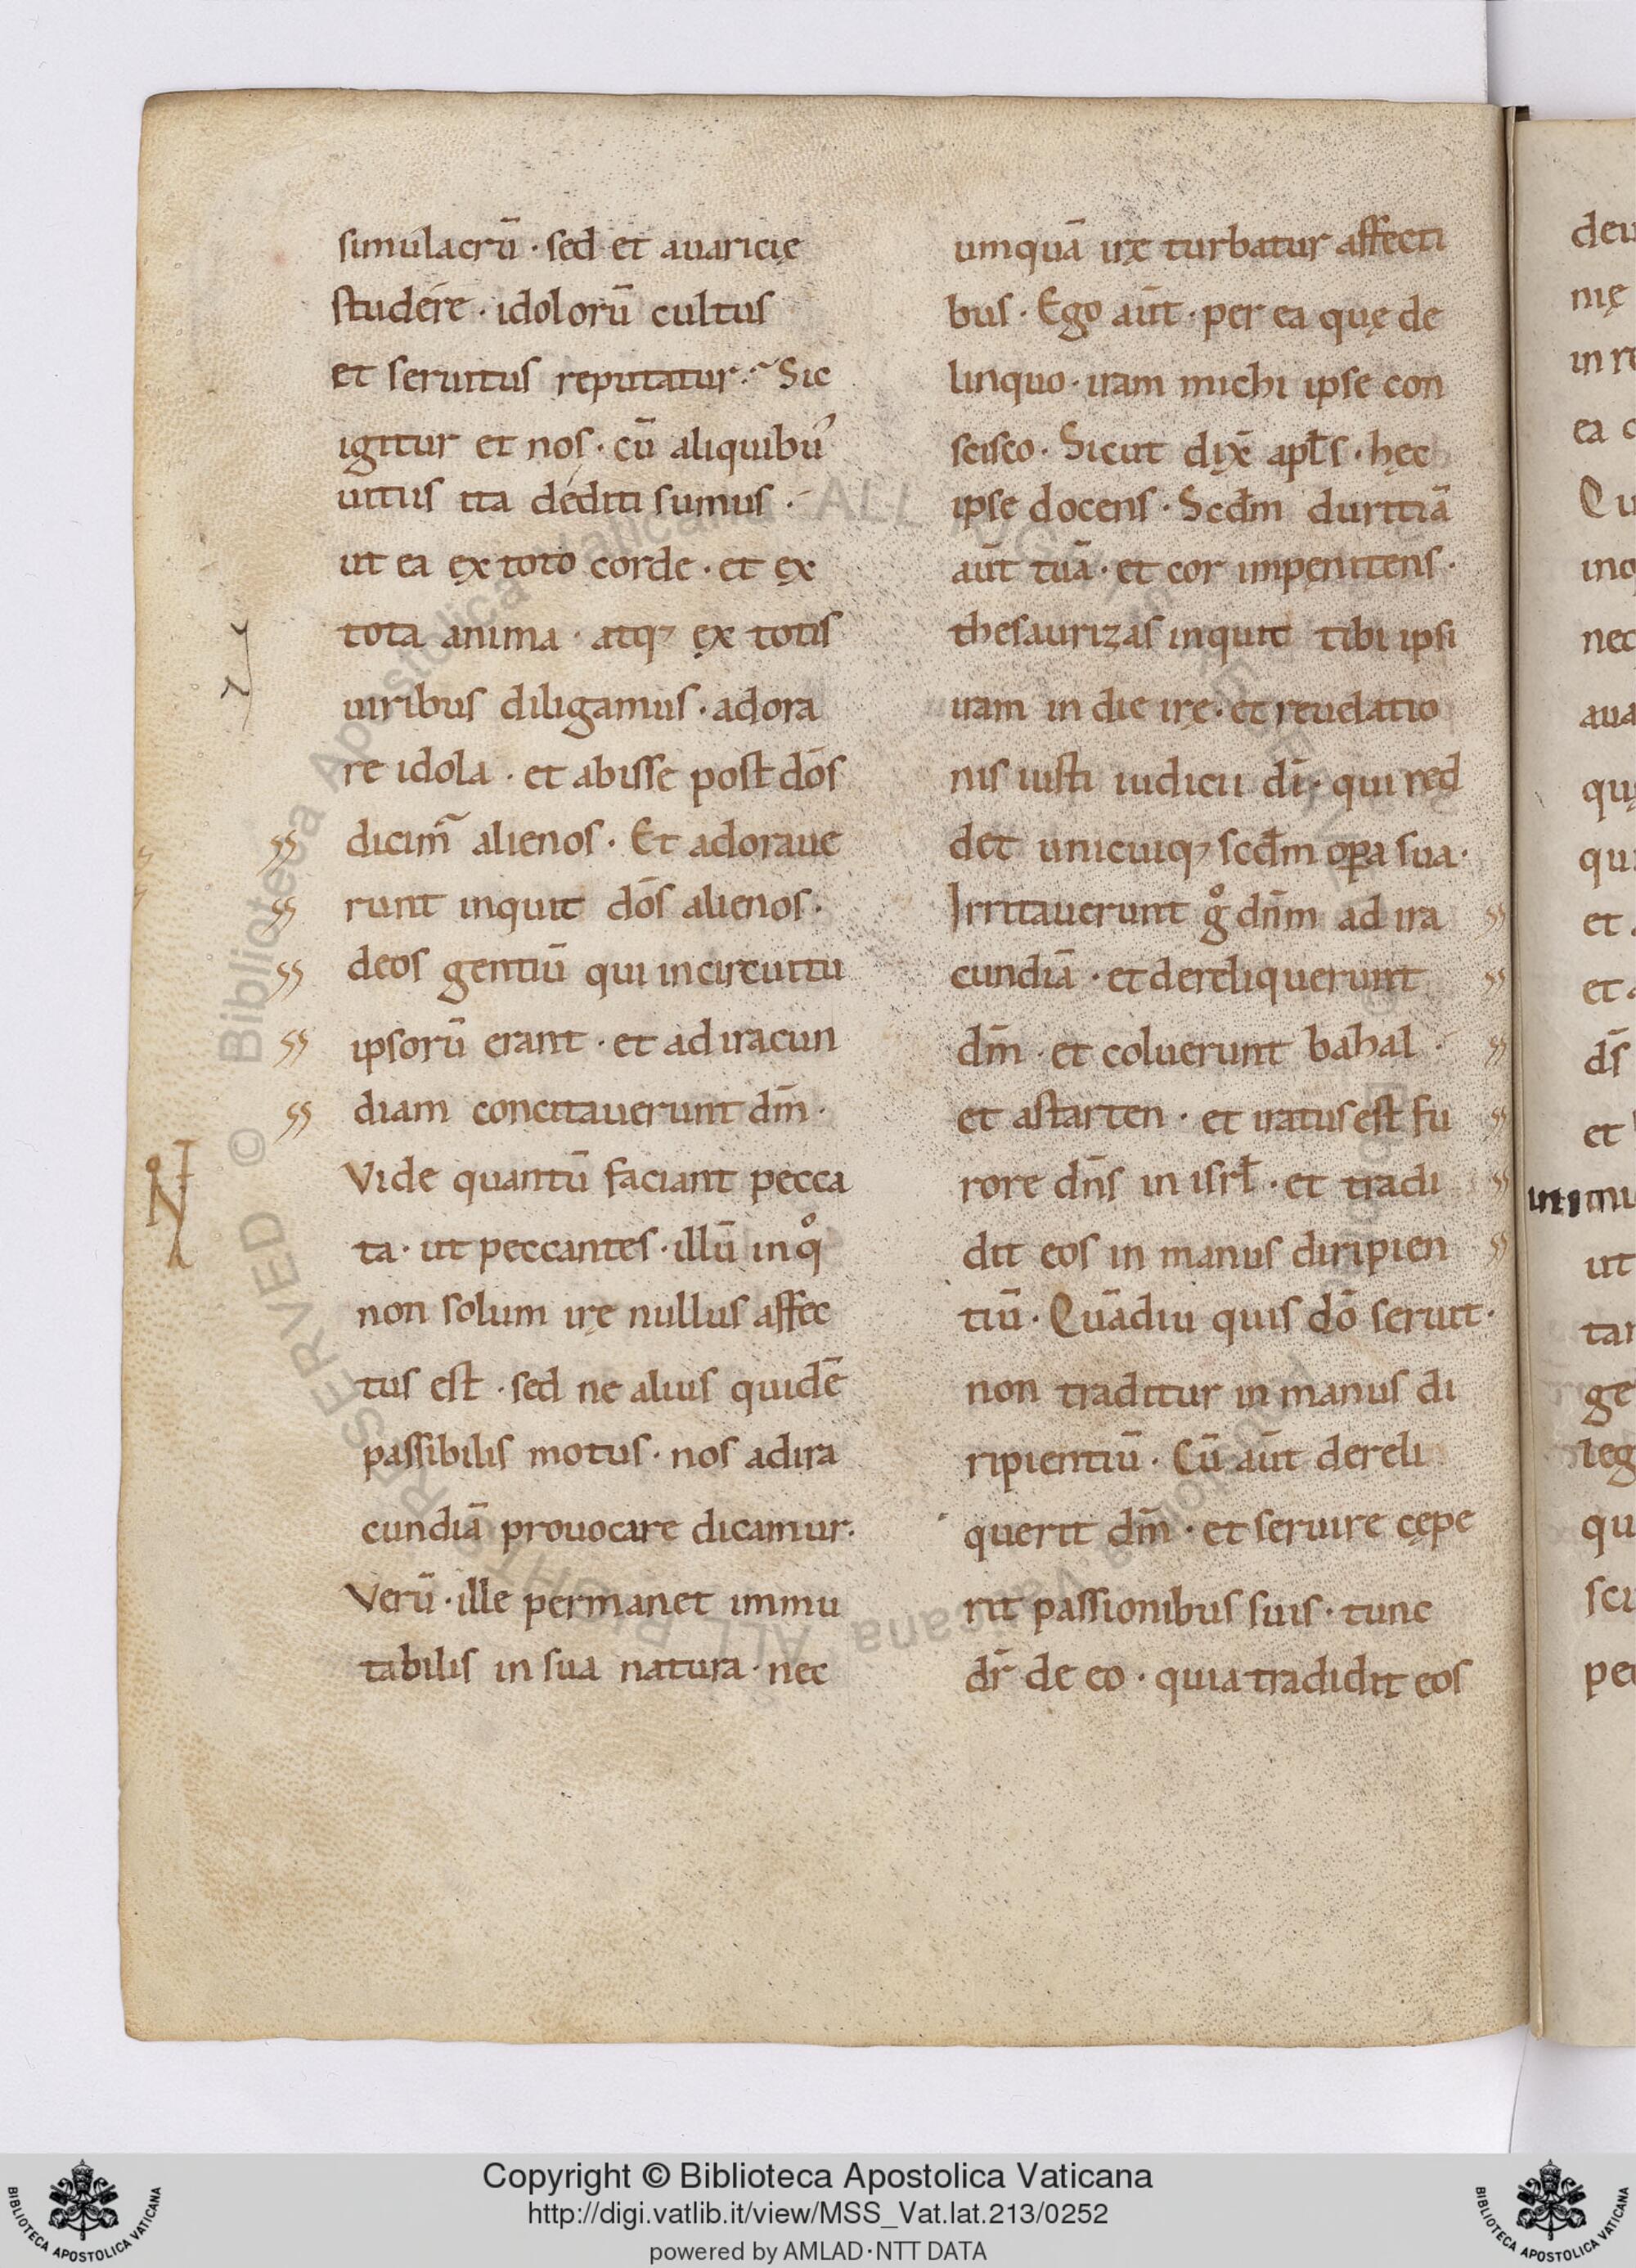 simulacrū · sed et auaricię
studére · idolorū cultus
et seruitus reputatur· Sic
igitur et nos · cū aliquibus
uitiis ita dediti sumus ·
ut ea ex toto corde · et ex
tota anima · atq; ex totis
uiribus diligamus · adora
re idola · et abisse post dōs
dicim̄ alienos · Et adoraue
runt inquit dōs alienos ·
deos gentiū qui incircuitu
ipsorū erant · et ad iracun
diam concitauerunt dm̄ ·
Vide quantū faciant pecca
ta · ut peccantes · illū in qͦ
non solum irę nullus affec
tus est · sed ne alius quidē
passibilis motus · nos adira
cundiā prouocare dicamur ·
Verū · ille permanet immu
tabilis in sua natura · nec
umquā irę turbatur affecti
bus · Ego aūt · per ea quę de
linquo · iram michi ipse con
scisco · Sicut dix̄ apłs · hęc
ipse docens · Scđm duritiā
aūt tuā · et cor impęnitens ·
thesaurizas inquit tibi ipsi
iram in die irę · et reuelatio
nis iusti iudicii dī · qui red
det unicuiq; scđm opa sua ·
Irritauerunt gͦ dn̄m ad ira
cundiā · et dereliquerunt
dm̄ · et coluerunt bahal ·
et astarten · et iratus est fu
rore dn̄s in isrł · et tradi
dit eos in manus diripien
tiū · Quādiu quis dō seruit ·
non traditur in manus di
ripientiū · Cū aūt dereli
querit dm̄ · et seruire cępe
rit passionibus suis · tunc
dr̄ de eo · quia tradidit eos
Copyright © Biblioteca Apostolica Vaticana
http://digi.vatlib.it/view/MSS_Vat.lat.213/0252
powered by AMLAD·NTT DATA